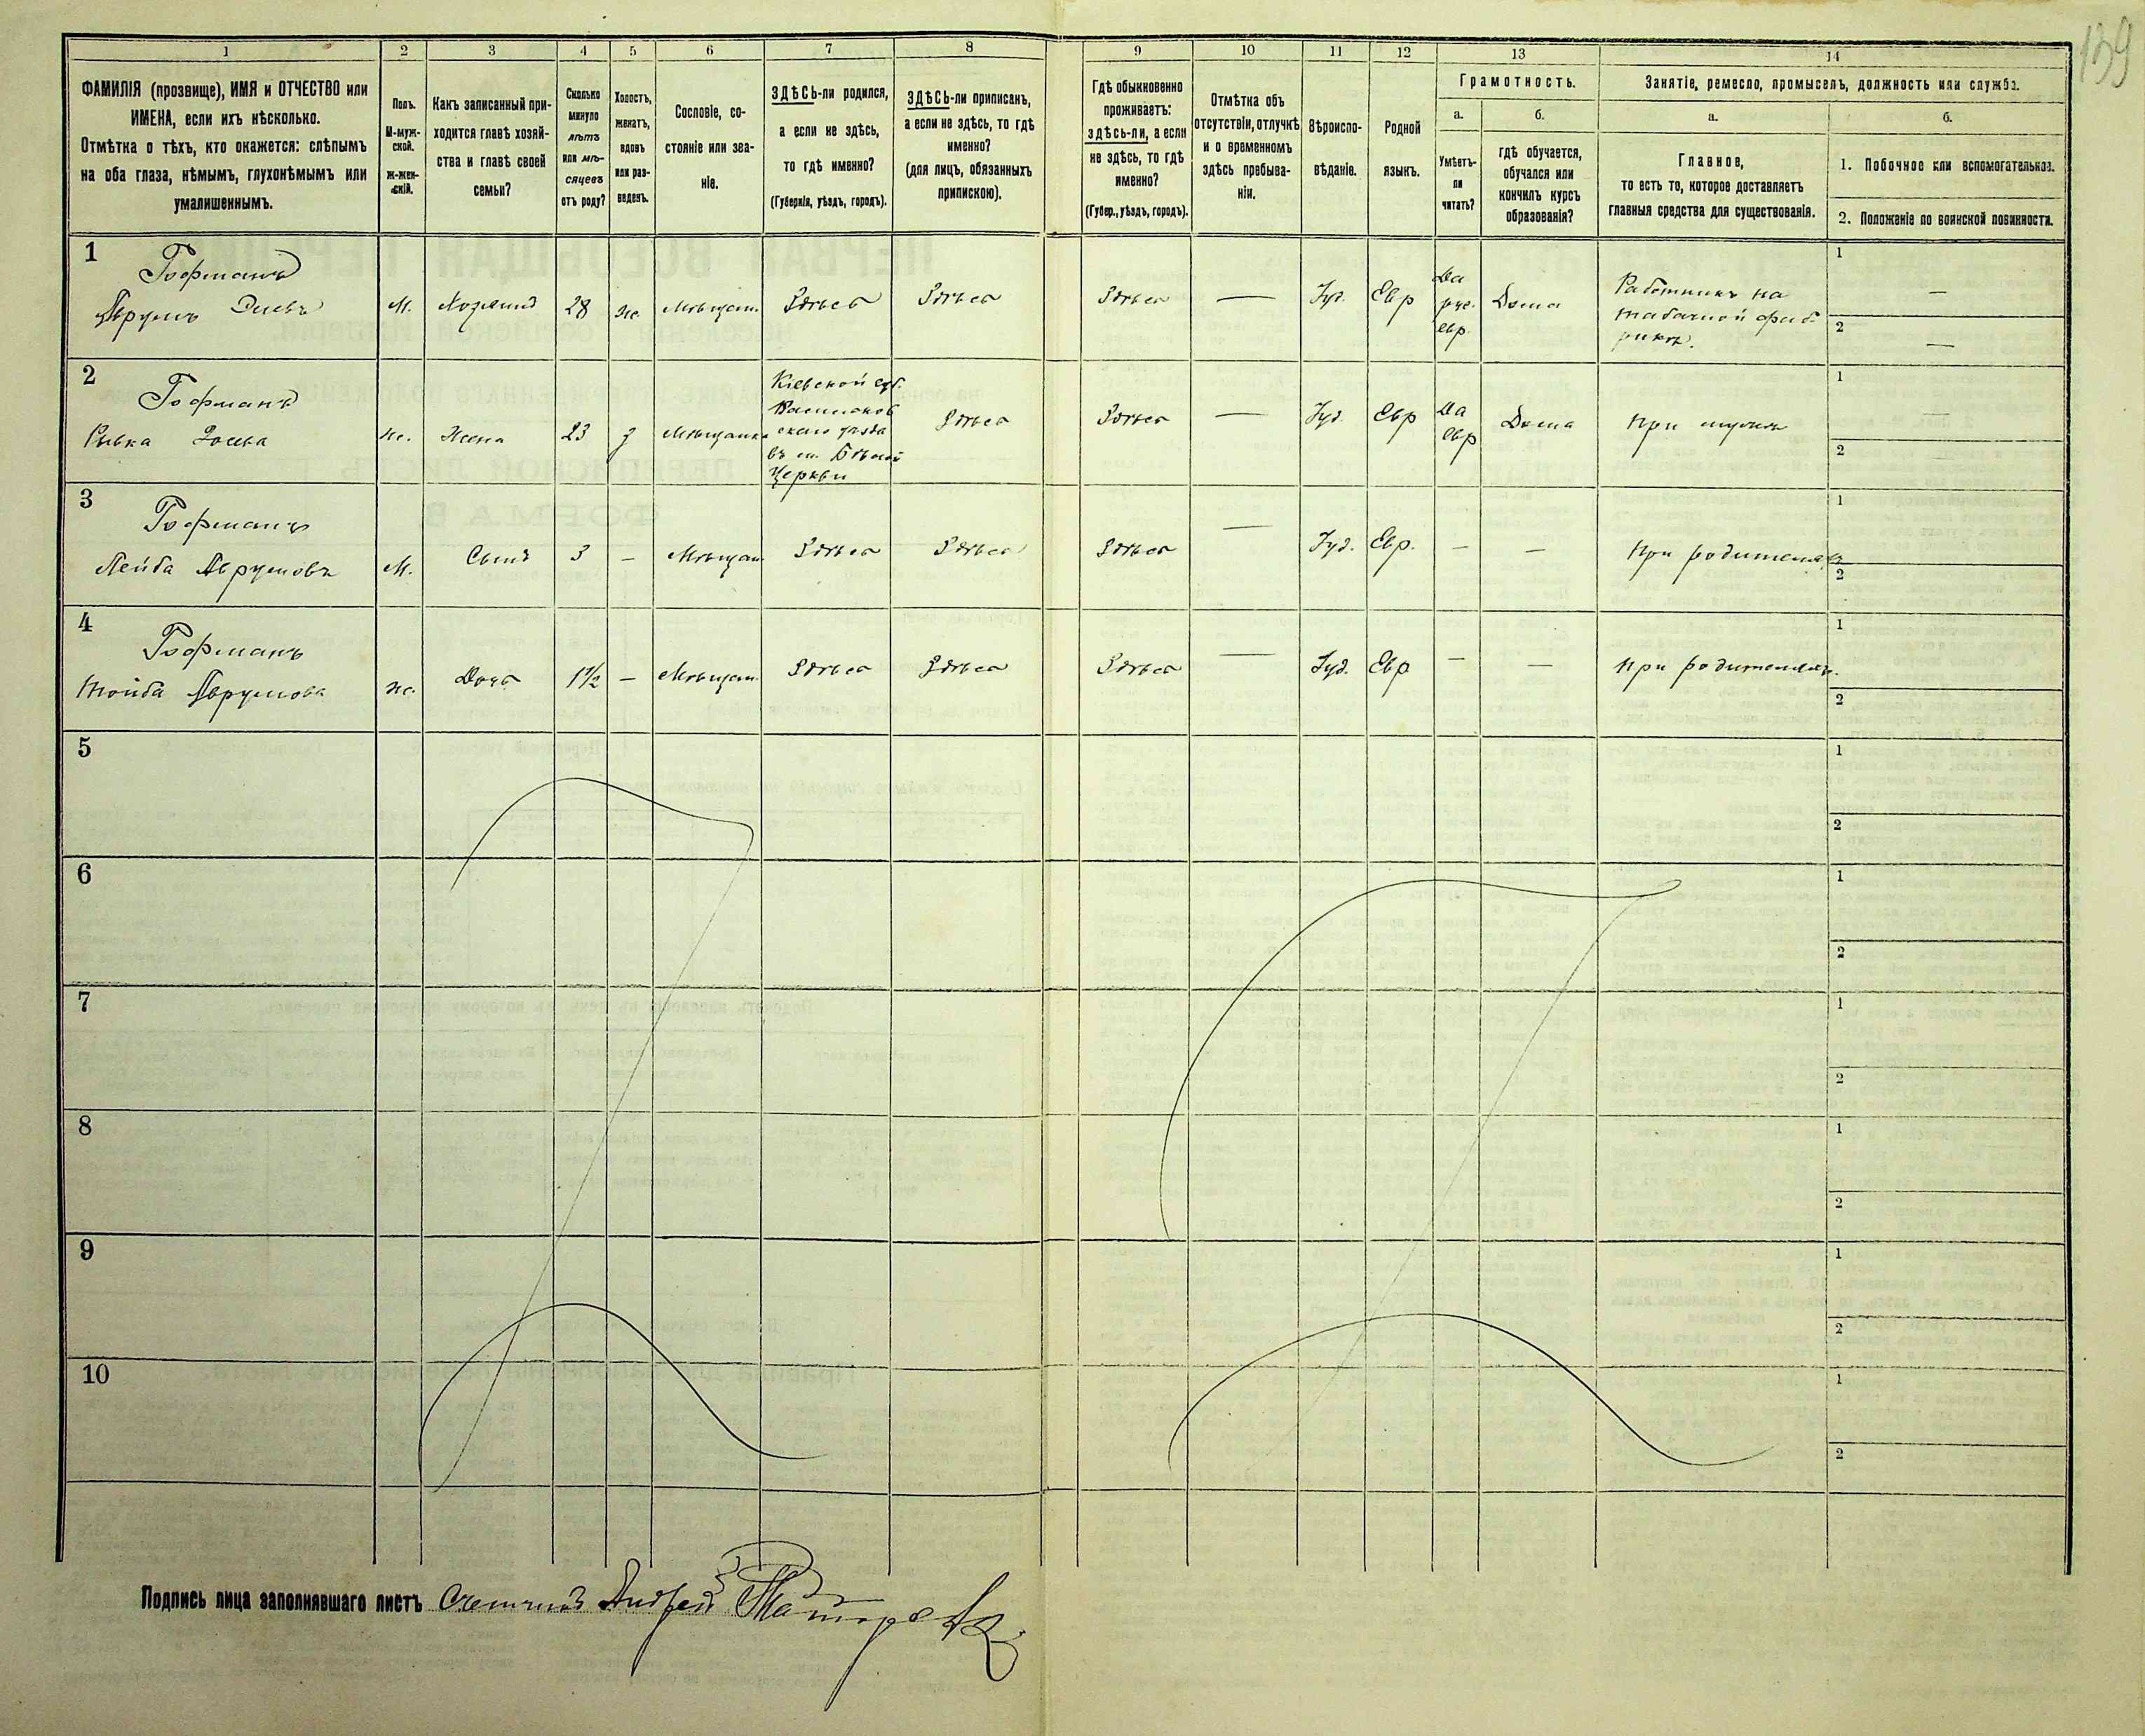 139
1 2 3 4 5 6 7 8 9 10 11 12 13 14
ФАМИЛІЯ (прозвище), ИМЯ и ОТЧЕСТВО или
ИМЕНА, если ихъ нѣсколько.
Отмѣтка о тѣхъ, кто окажется: слѣпымъ
на оба глаза, нѣмымъ, глухонѣмымъ или
умалишеннымъ.
Полъ.
М-муж-
ской.
Ж-жен-
скій.
Какъ записанный при-
ходится главѣ хозяй-
ства и главѣ своей
семьи?
Сколько
минуло
лѣтъ
или мѣ-
сяцевъ
отъ роду?
Холостъ,
женатъ,
вдовъ
или раз-
веденъ.
Сословіе, со-
стояніе или зва-
ніе.
ЗДѢСЬ-ли родился,
а если не здѣсь,
то гдѣ именно?
(Губернія, уѣздъ, городъ).
ЗДѢСЬ-ли приписанъ,
а если не здѣсь, то гдѣ
именно?
(для лицъ, обязанныхъ
припискою).
Гдѣ обыкновенно
проживаетъ:
здѣсь-ли, а если
не здѣсь, то гдѣ
именно?
(Губер., уѣздъ, городъ).
Отмѣтка объ
отсутствіи, отлучкѣ
и о временномъ
здѣсь пребыва-
ніи.
Вѣроиспо-
вѣданіе.
Родной
языкъ.
Грамотность.
а.
Умѣетъ-
ли
читать?
б.
гдѣ обучается,
обучался или
кончилъ курсъ
образованія?
Занятіе, ремесло, промыселъ, должность или служба.
а.
Главное,
то есть то, которое доставляетъ
главныя средства для существованія.
б.
1. Побочное или вспомогательное.
2. Положеніе по воинской повинности.
1
Гофманъ
Аврумъ
М. Хозяинъ 28 ж. Мѣщан. Здѣсь Здѣсь
Здѣсь — Іуд. Евр
Да
рус.
евр.
Дома
Работникъ на
табачной фаб-
рикѣ.
1 —
2 —
2
Гофманъ
Рывка
ж. Жена 23 з Мѣщанка
Кіевской губ.
Васильков
скаго уѣзда
въ м. Бѣлой
Церкви
Здѣсь
Здѣсь — Іуд. Евр
Да
евр
Дома
При мужѣ
1 —
2 —
3
Гофманъ
Лейба Аврумовъ
М. Сынъ 3 — Мѣщан Здѣсь Здѣсь
Здѣсь — Іуд. Евр. — — При родителяхъ
1
2
4
Гофманъ
Тойба Аврумова
ж. Дочь 1½ — Мѣщан. Здѣсь Здѣсь
Здѣсь — Іуд. Евр — — При родителяхъ.
1
2
5
1
2
6
1
2
7
1
2
8
1
2
9
1
2
10
1
2
Подпись лица заполнявшаго листъ Счетчикъ Андрей